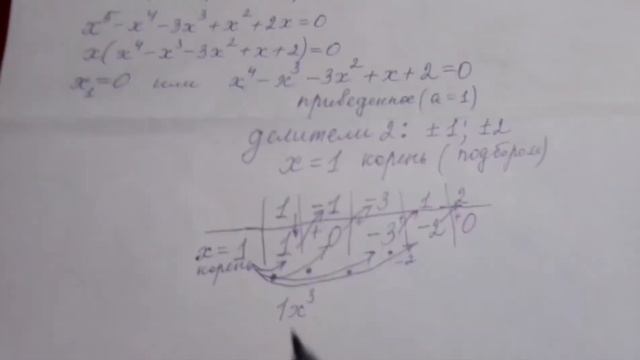 x⁵-x⁴-3x³+x²+2x=0
x(x⁴-x³-3x²+x+2)=0
x₁=0 или x⁴-x³-3x²+x+2=0
приведенное (a=1)
делители 2: ±1; ±2
x=1 корень (подбором)
| 1 | -1 | -3 | 1 | 2
x=1 | 1 | 0 | -3 | -2 | 0
корень
-2
1x³